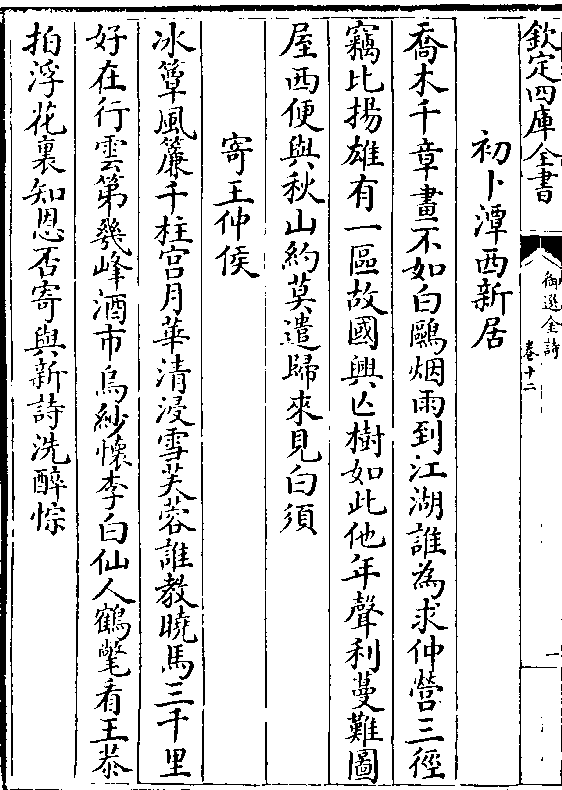 欽定四庫全書
御選金詩
卷十二
一
初卜潭西新居
喬木千章畫不如白鷗烟雨到江湖誰為求仲營三徑
竊比揚雄有一區故國興亡樹如此他年聲利蔓難圖
屋西便與秋山約莫遣歸來見白須
寄王仲侯
冰簟風簾千柱宫月華清浸雪芙蓉誰教曉馬三千里
好在行雲第幾峰酒市烏紗懷李白仙人鶴氅看王恭
拍浮花裏知恩否寄與新詩洗醉悰